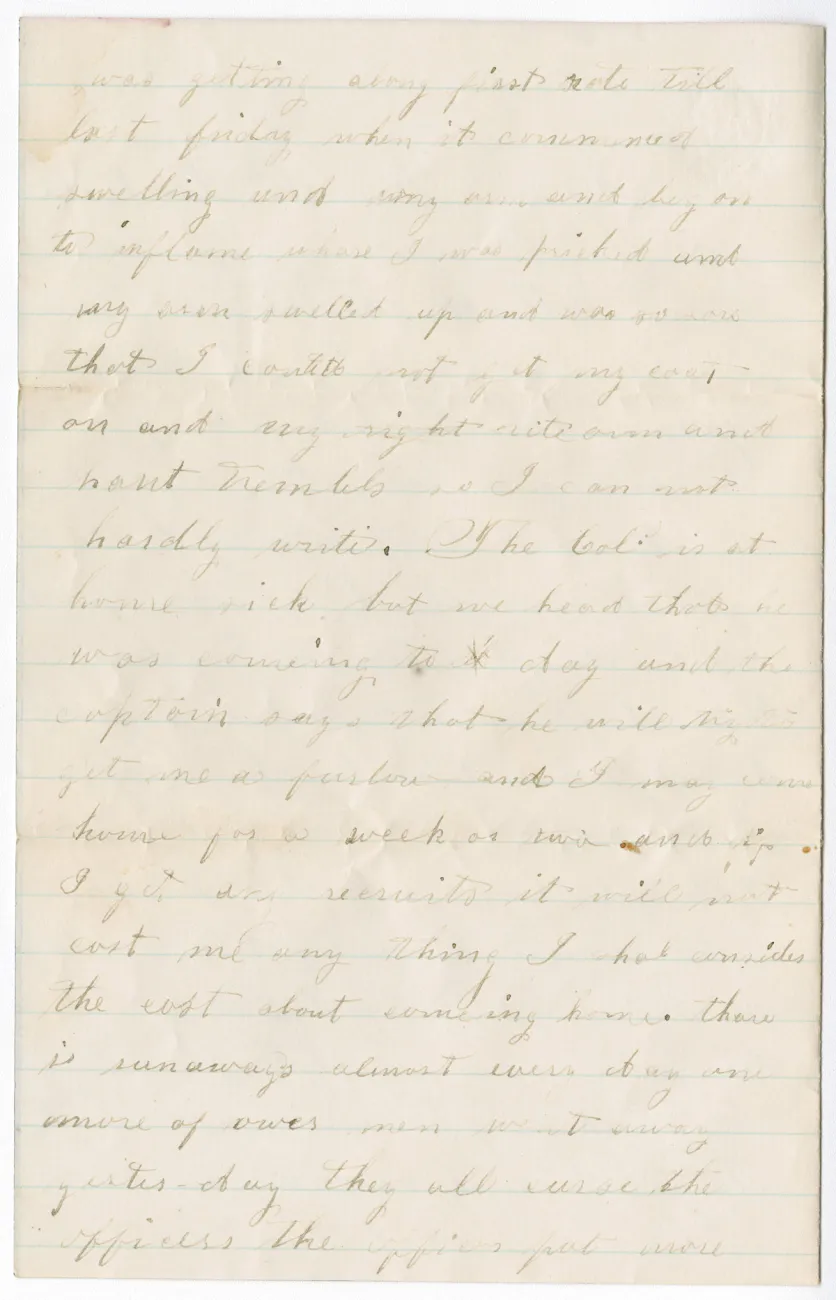 was getting along first rate till
last friday when it commenced
swelling und my arm and began
to inflame whare I was pricked and
my arm swelled up and was so sore
that I could not get my coat
on and my right arm and
hant trembls so I can not
hardly write. The Col. is at
home sick but we head that he
was comeing to day and the
captain says that he will try to
get me a furlow and I may come
home for a week or two and if
I get any recruits it will not
cost me any thing I shal consider
the cost about comeing home. thare
is runaways almost every day one
more of owers men went away
yester-day they all curse the
officers the officers put more